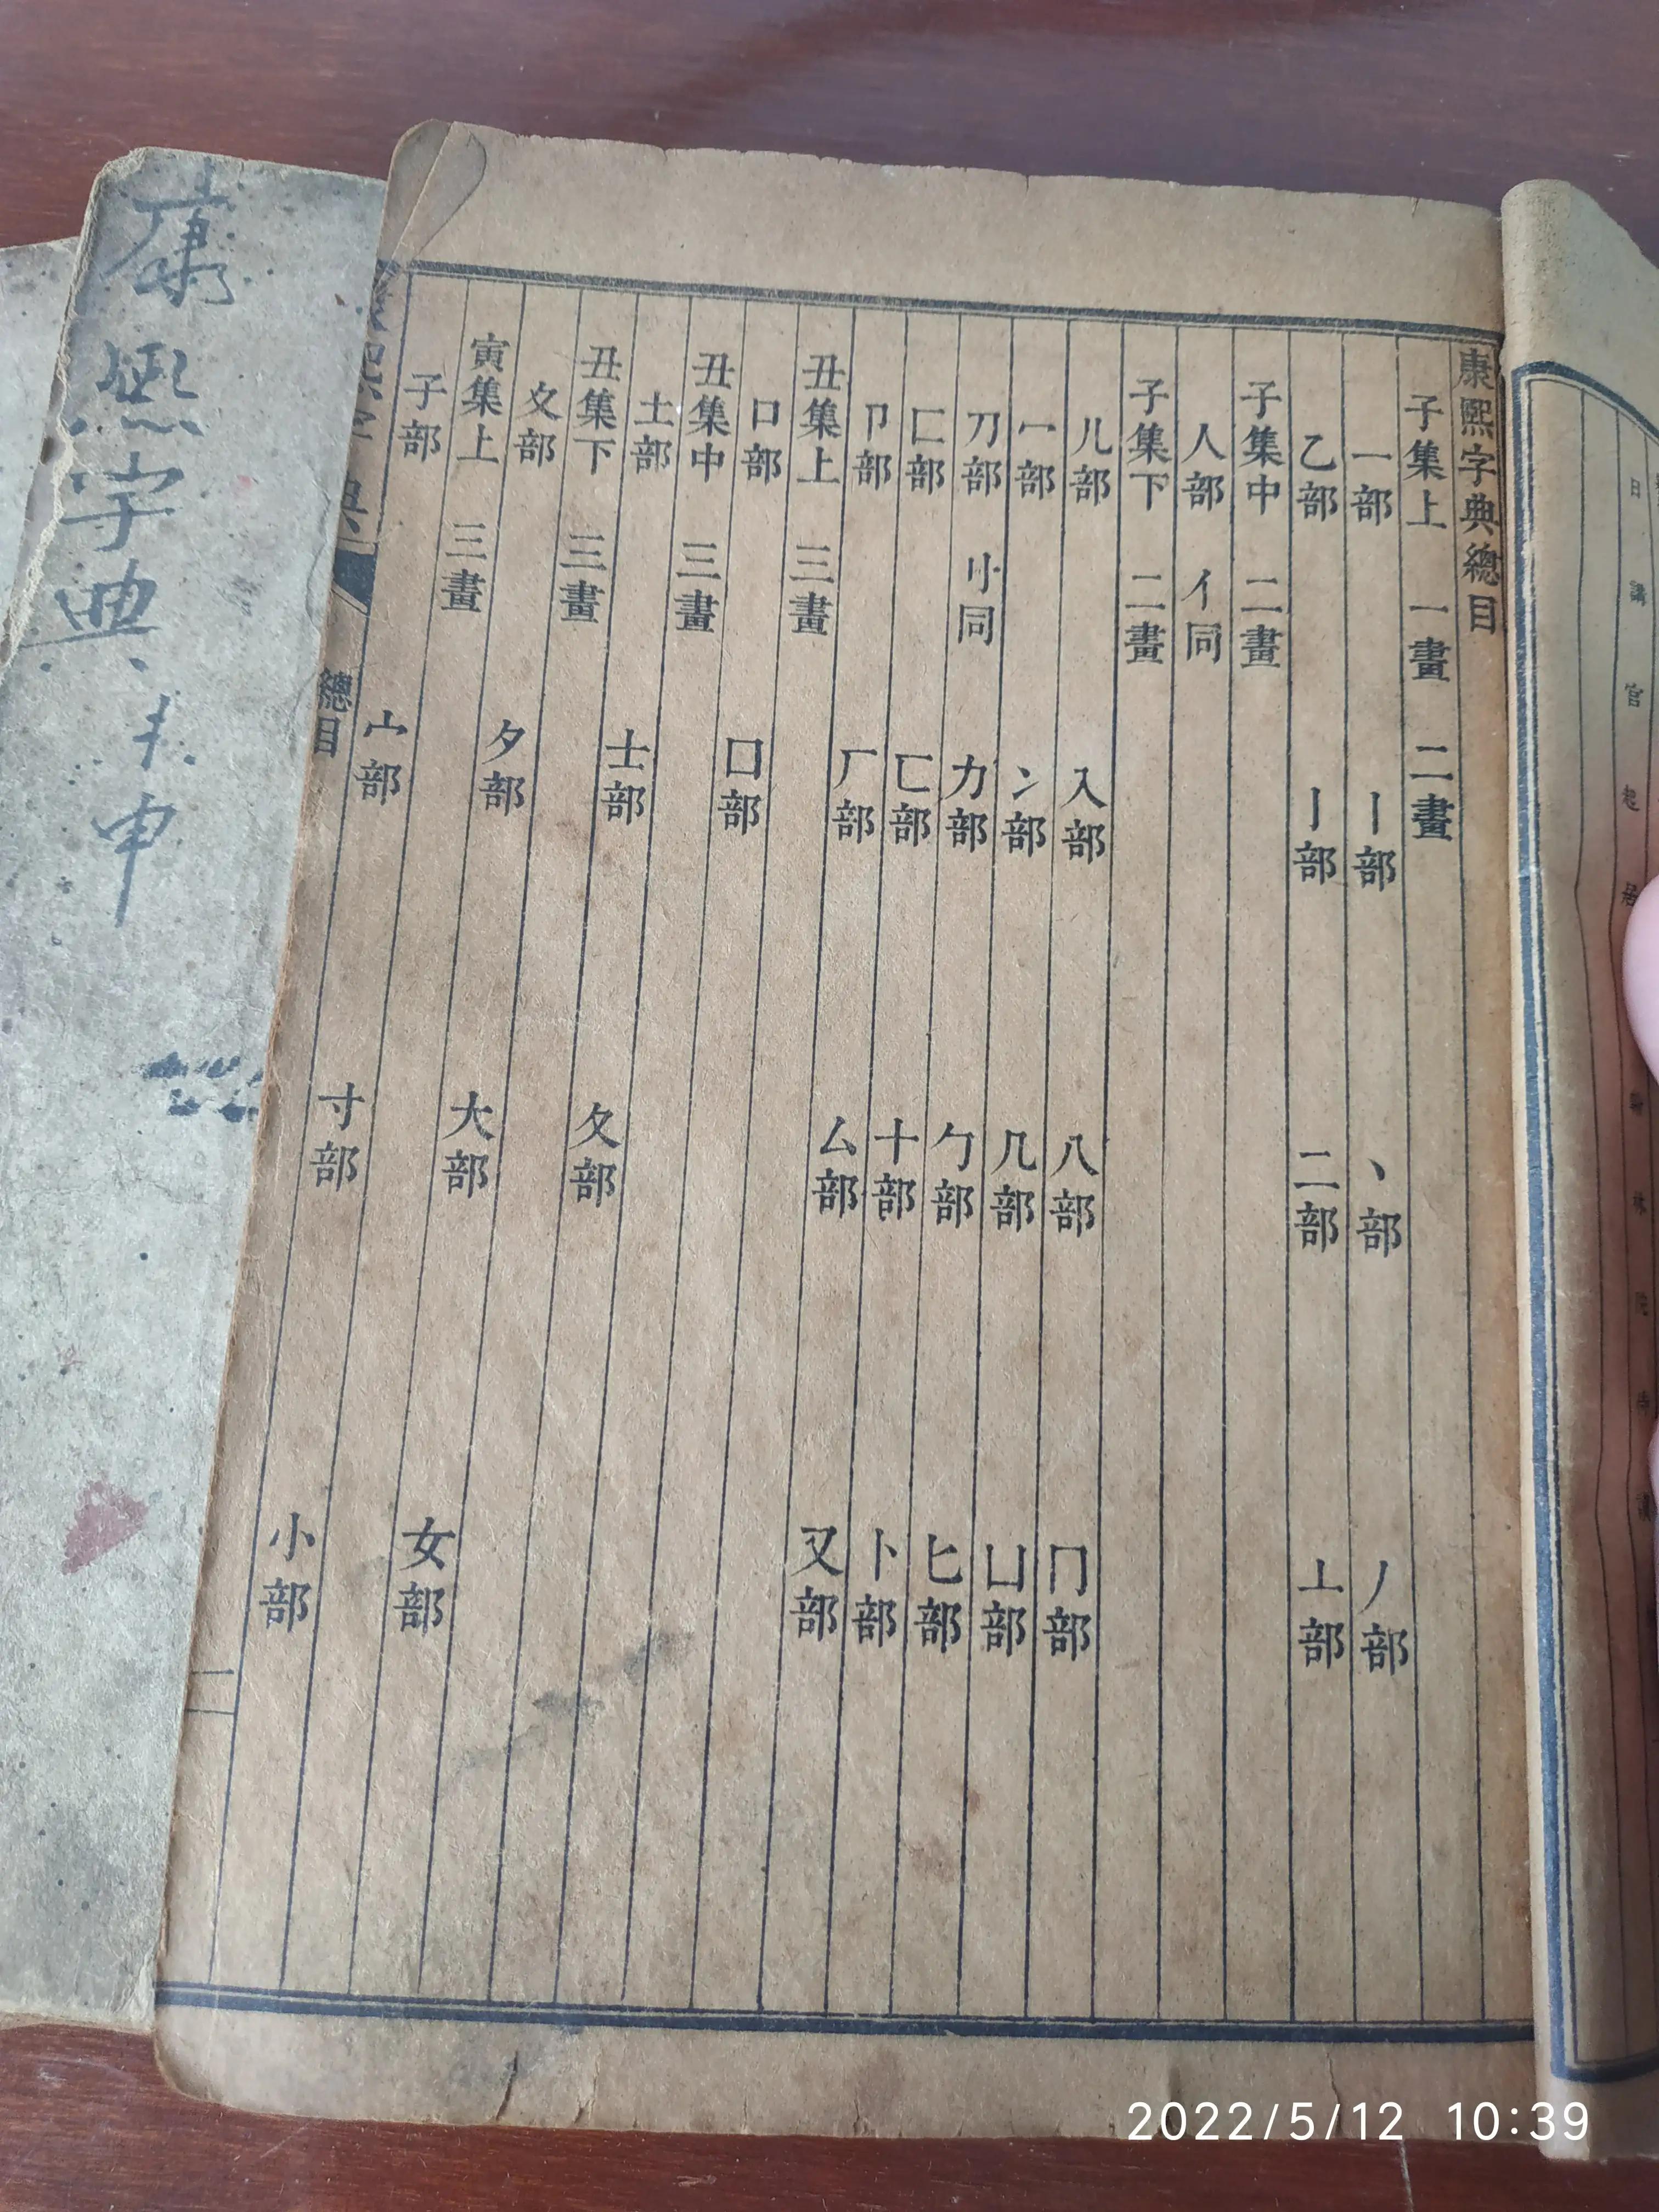 康熙字典總目
子集上 一畫 二畫
一部 丨部 丶部 丿部
乙部 亅部 二部 亠部
子集中 二畫
人部 亻同
子集下 二畫
儿部 入部 八部 冂部
冖部 冫部 几部 凵部
刀部 刂同 力部 勹部 匕部
匚部 匸部 十部 卜部
卩部 厂部 厶部 又部
丑集上 三畫
口部 囗部
丑集中 三畫
土部 士部 夂部
丑集下 三畫
夊部 夕部 大部 女部
寅集上 三畫
子部 宀部 寸部 小部
典 總目 一
康熙字典
申
日講官起居
院
2022/5/12 10:39